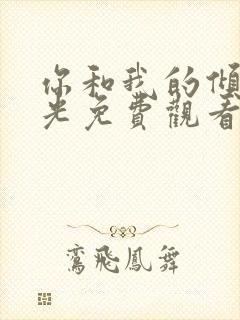 你和我的傾
光免費觀看
鸞飛鳳舞